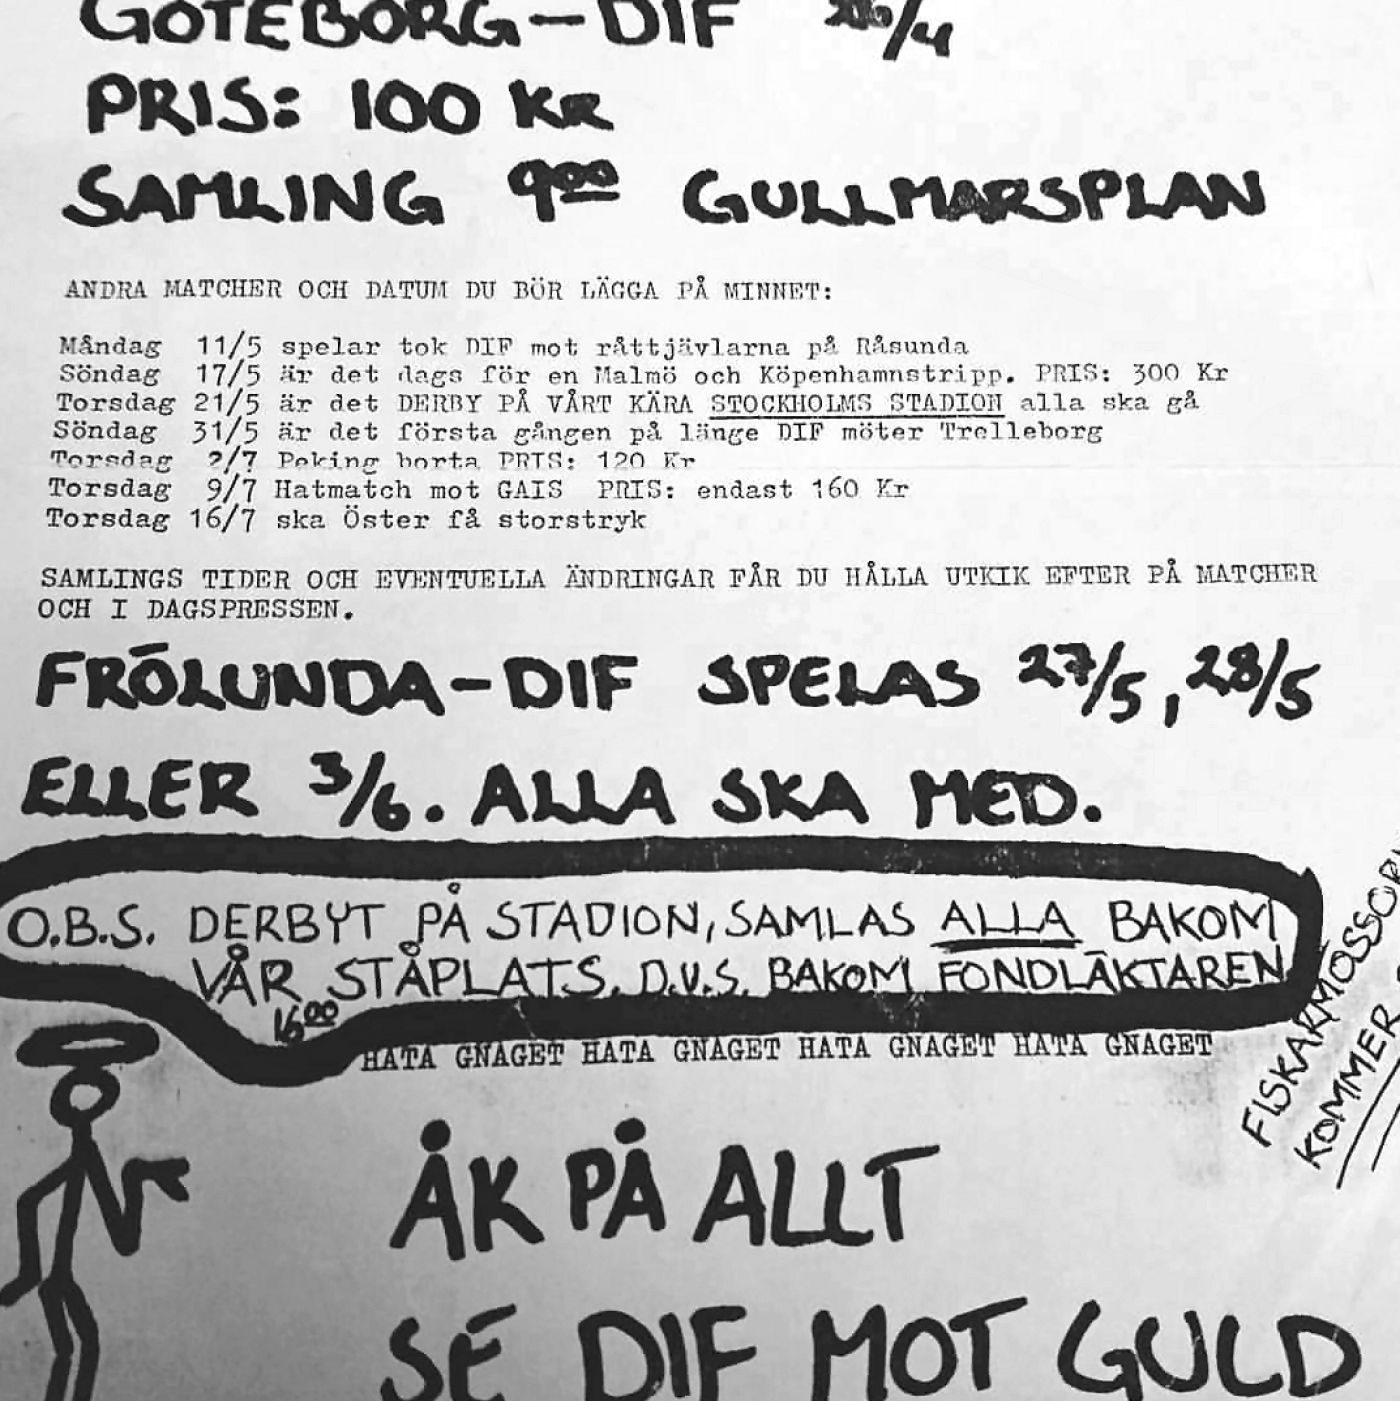 GÖTEBORG-DIF 26/4
PRIS: 100 KR
SAMLING 9⁰⁰ GULLMARSPLAN
ANDRA MATCHER OCH DATUM DU BÖR LÄGGA PÅ MINNET:
Måndag 11/5 spelar tok DIF mot råttjävlarna på Råsunda
Söndag 17/5 är det dags för en Malmö och Köpenhamnstripp. PRIS: 300 Kr
Torsdag 21/5 är det DERBY PÅ VÅRT KÄRA STOCKHOLMS STADION alla ska gå
Söndag 31/5 är det första gången på länge DIF möter Trelleborg
Torsdag 2/7 Peking borta PRIS: 120 Kr
Torsdag 9/7 Hatmatch mot GAIS PRIS: endast 160 Kr
Torsdag 16/7 ska Öster få storstryk
SAMLINGS TIDER OCH EVENTUELLA ÄNDRINGAR FÅR DU HÅLLA UTKIK EFTER PÅ MATCHER
OCH I DAGSPRESSEN.
FRÖLUNDA-DIF SPELAS 27/5, 28/5
ELLER 3/6. ALLA SKA MED.
O.B.S. DERBYT PÅ STADION, SAMLAS ALLA BAKOM
VÅR STÅPLATS. D.V.S. BAKOM FONDLÄKTAREN
16⁰⁰
HATA GNAGET HATA GNAGET HATA GNAGET HATA GNAGET
FISKARMOSSOR
KOMMER
ÅK PÅ ALLT
SE DIF MOT GULD